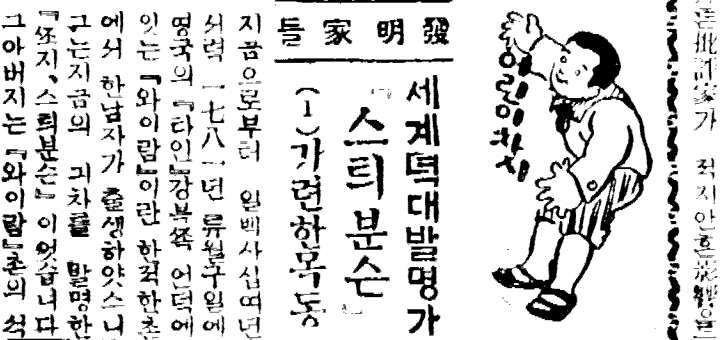 批評家가 적지안흔影響을
어린이차지
發明家들
세계뎍대발명가
『스틔분슨』
(1)가련한목동
지금으로부터 일백사십여년
서력 一七八一년 류월구일에
영국의 『타인』강복쪽 언덕에
잇는 『와이람』이란 한적한촌
에서 한남자가 출생하얏스니
그는지금의 긔차를 발명한
『쪼지、스틔분슨』이엇습니다
그아버지는 『와이람』촌의 석